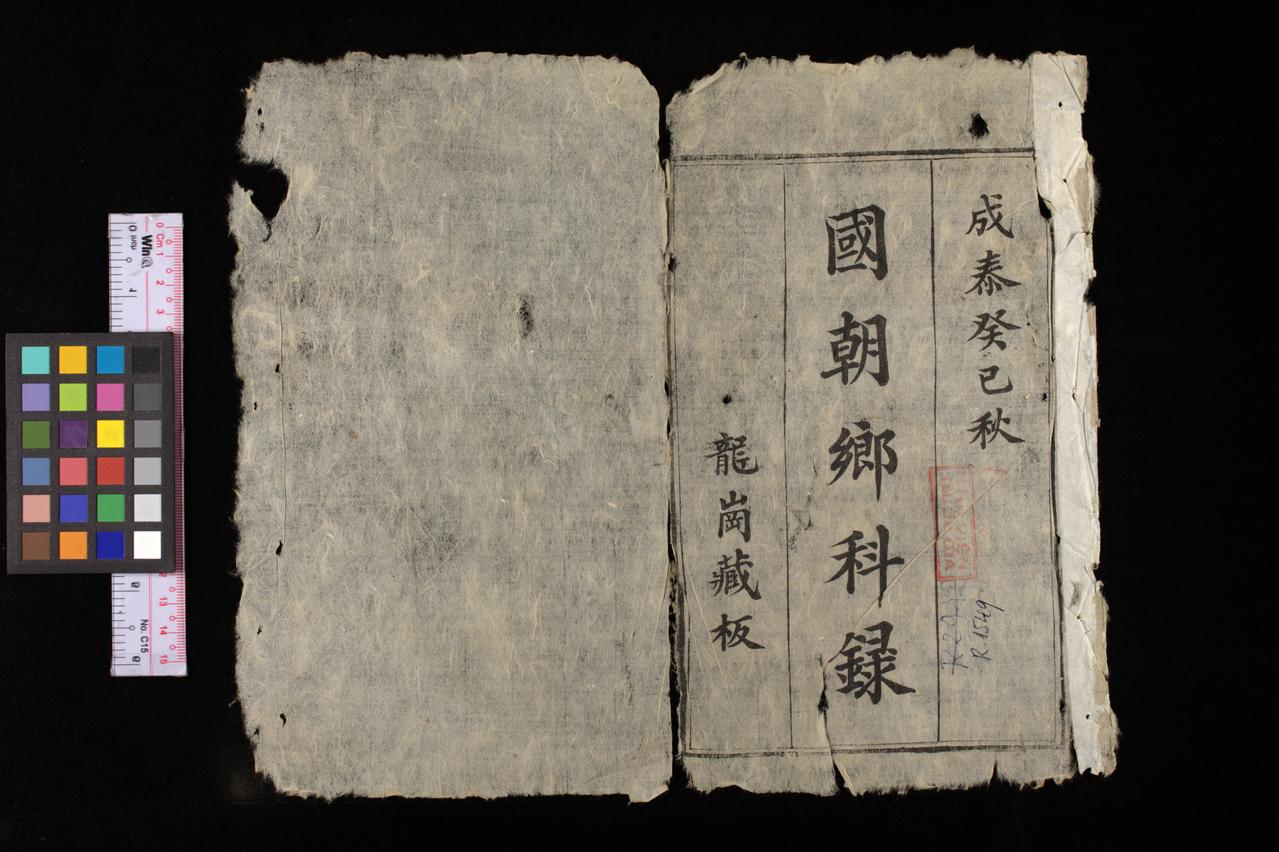 成泰癸巳秋
國朝鄉科録
龍崗藏板
R.1549
0 Cm 1
2
3
13
14
15
No. C15